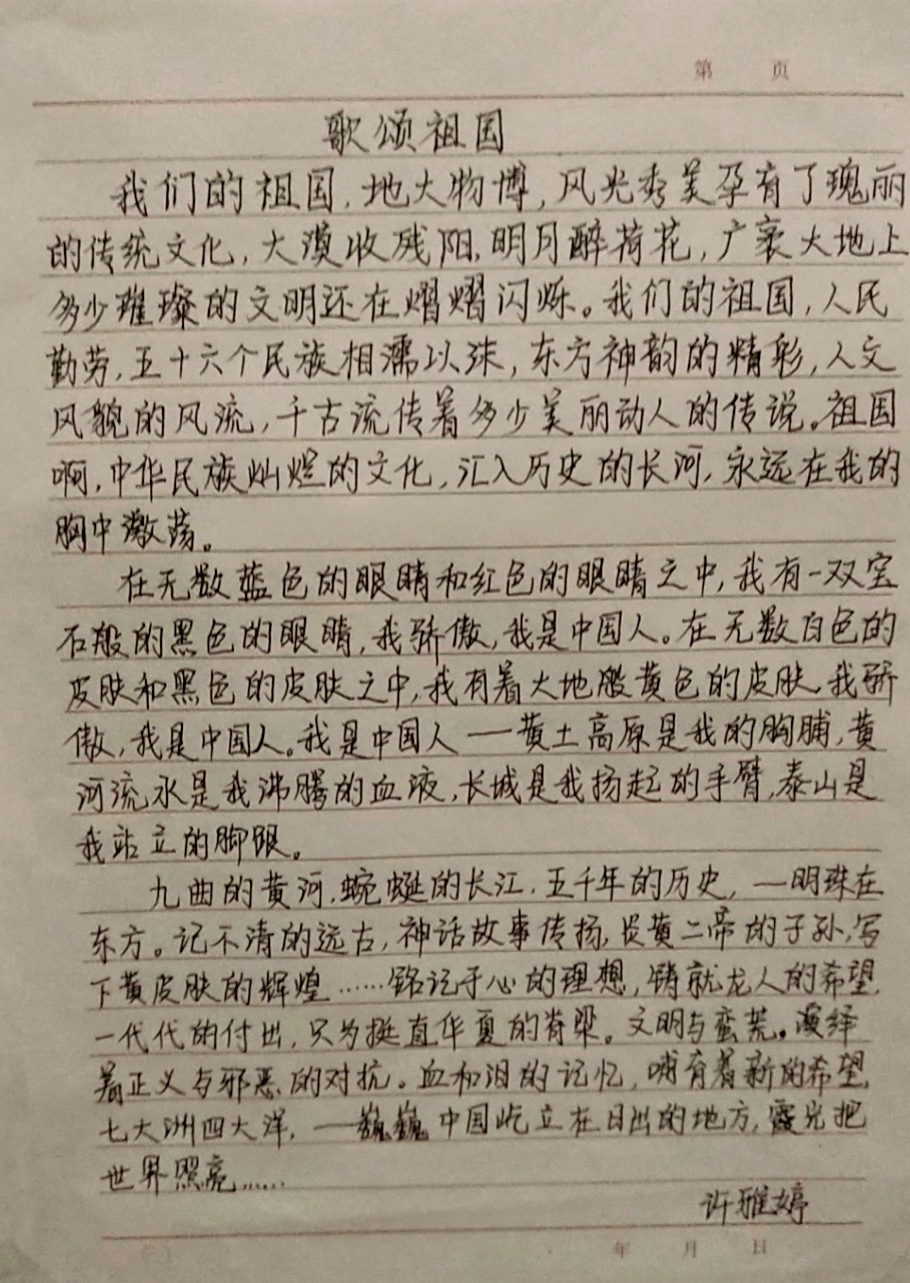 第 页
歌颂祖国
我们的祖国,地大物博,风光秀美孕有了瑰丽
的传统文化,大漠收残阳,明月醉荷花,广袤大地上
多少璀璨的文明还在熠熠闪烁。我们的祖国,人民
勤劳,五十六个民族相濡以沫,东方神韵的精彩,人文
风貌的风流,千古流传着多少美丽动人的传说。祖国
啊,中华民族灿烂的文化,汇入历史的长河,永远在我的
胸中激荡。
在无数蓝色的眼睛和红色的眼睛之中,我有一双宝
石般的黑色的眼睛,我骄傲,我是中国人。在无数白色的
皮肤和黑色的皮肤之中,我有着大地般黄色的皮肤,我骄
傲,我是中国人。我是中国人——黄土高原是我的胸脯,黄
河流水是我沸腾的血液,长城是我扬起的手臂,泰山是
我站立的脚跟。
九曲的黄河,蜿蜒的长江,五千年的历史,一明珠在
东方。记不清的远古,神话故事传扬,炎黄二帝的子孙,写
下黄皮肤的辉煌……铭记于心的理想,铸就龙人的希望,
一代代的付出,只为挺直华夏的脊梁。文明与蛮荒。演绎
着正义与邪恶的对抗。血和泪的记忆,哺育着新的希望,
七大洲四大洋,一巍巍中国屹立在日出的地方,霞光把
世界照亮……
许雅婷
年 月 日